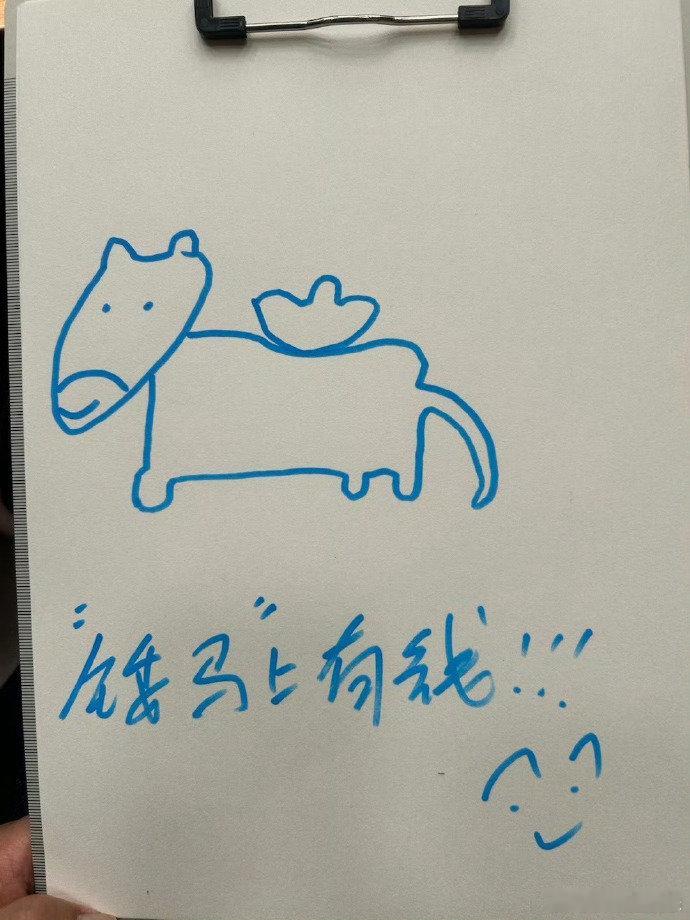 "矮马"上有钱!!!